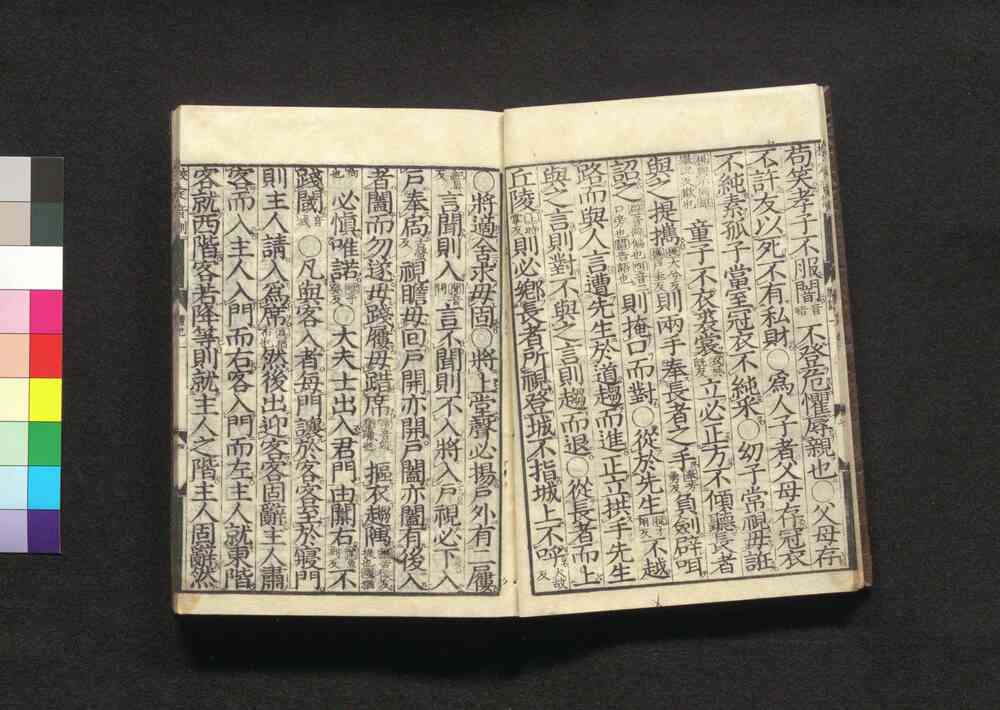 苟笑孝子不服闇不登危懼辱親也○父母存
不許友以死不有私財○為人子者父母存冠衣
不純素孤子當室冠衣不純采○幼子常視毋誑
童子不衣裘裳立必正方不傾聽長者
與之提攜則兩手奉長者之手負劍辟咡
詔之則掩口而對○從於先生不越
路而與人言遭先生於道趨而進正立拱手先生
與之言則對不與之言則趨而退○從長者而上
丘陵則必鄉長者所視登城不指城上不呼
○將適舍求毋固○將上堂聲必揚戶外有二屨
言聞則入言不聞則不入將入戶視必下入
戶奉扃視瞻毋回戶開亦開戶闔亦闔有後入
者闔而勿遂毋踐屨毋踖席摳衣趨隅
必慎唯諾○大夫士出入君門由闑右不
踐閾○凡與客入者每門讓於客客至於寢門
則主人請入為席然後出迎客客固辭主人肅
客而入主人入門而右客入門而左主人就東階
客就西階客若降等則就主人之階主人固辭然